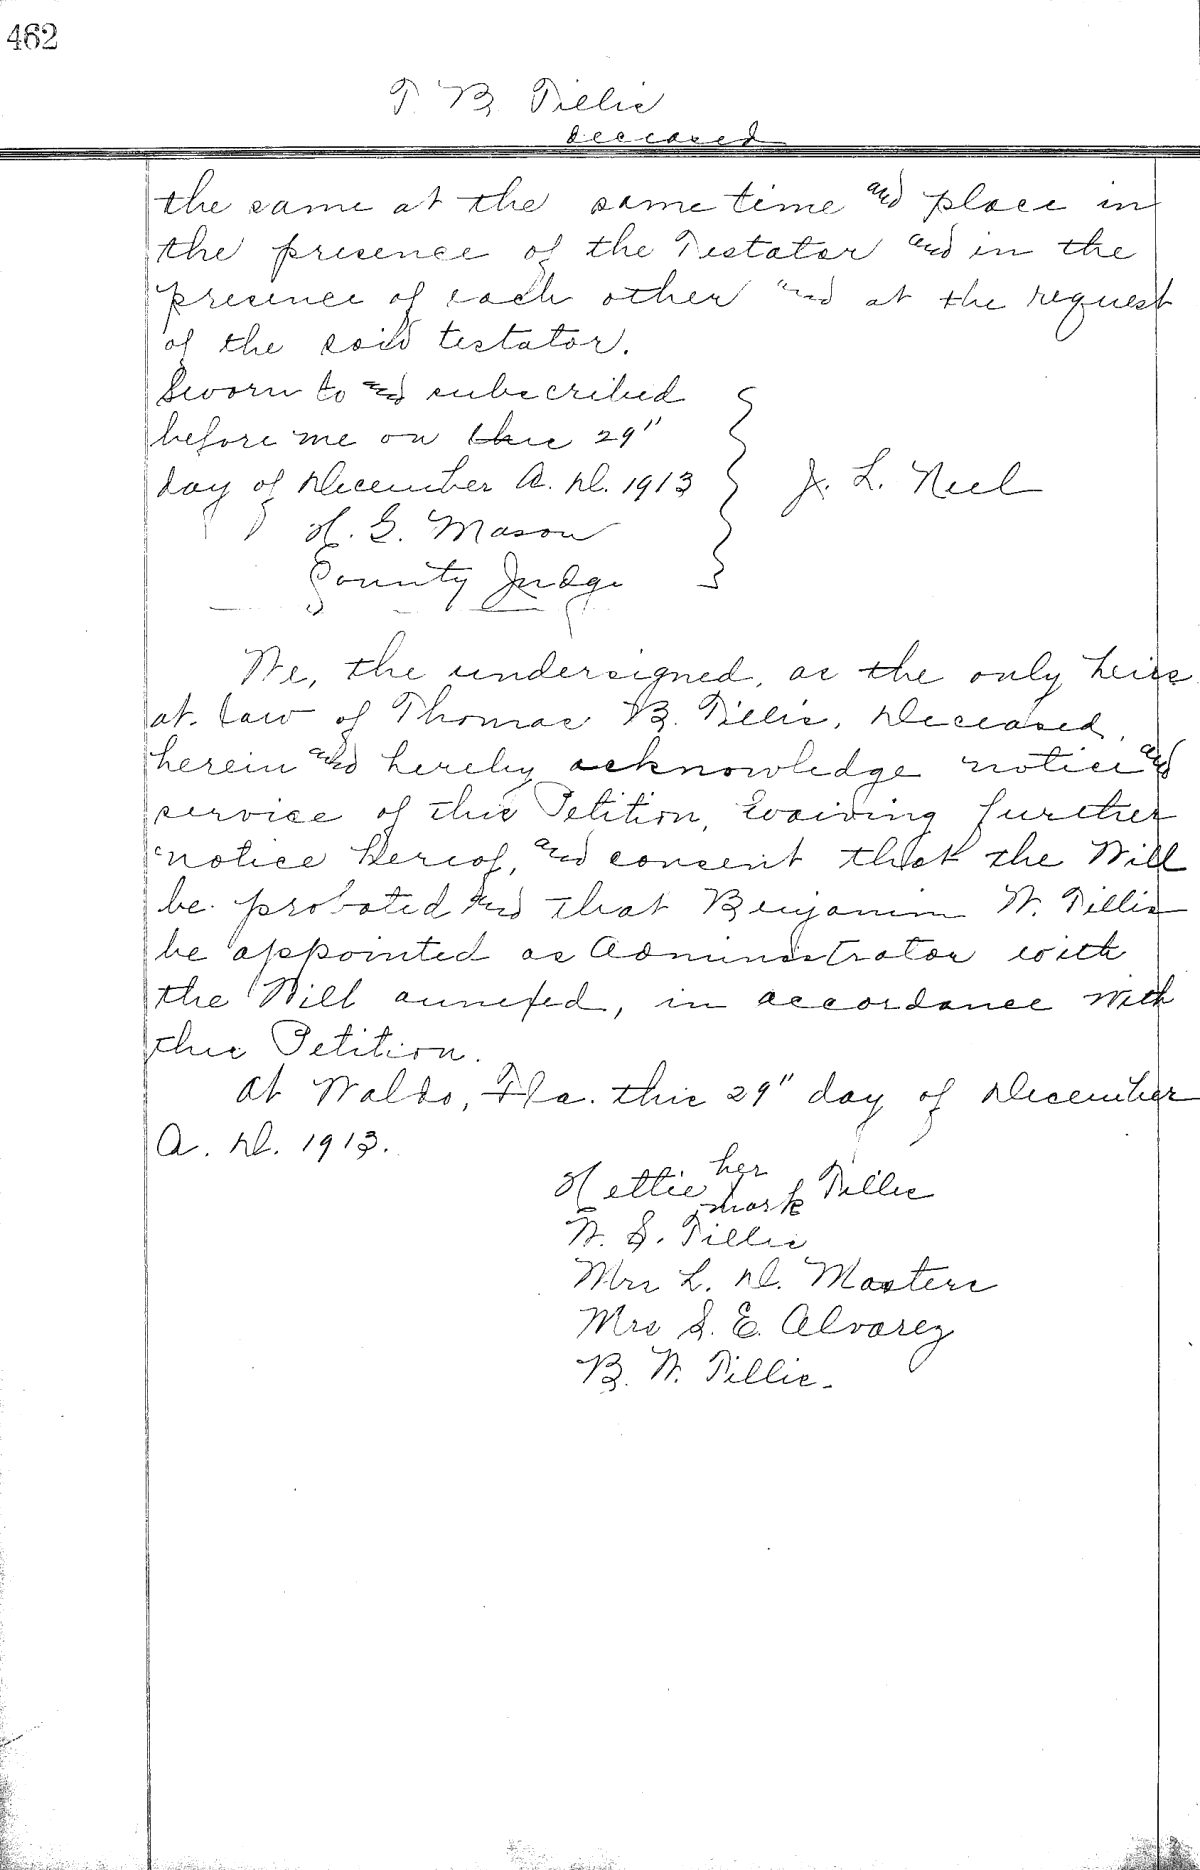 462
T. B. Tillis
deceased
the same at the same time and place in
the presence of the Testator and in the
presence of each other and at the request
of the said testator.
Sworn to and subscribed
before me on this 29"
day of December A. D. 1913
J. L. Neel
H. G. Mason
County Judge
We, the undersigned, as the only heirs
at law of Thomas B. Tillis, Deceased,
herein and hereby acknowledge notice and
service of this Petition, waiving further
notice hereof, and consent that the Will
be probated and that Benjamin W. Tillis
be appointed as Administrator with
the Will annexed, in accordance with
this Petition.
At Waldo, Fla. this 29" day of December
A. D. 1913.
Hettie her mark Tillis
W. S. Tillis
Mrs L. D. Masters
Mrs S. E. Alvarez
B. W. Tillis.